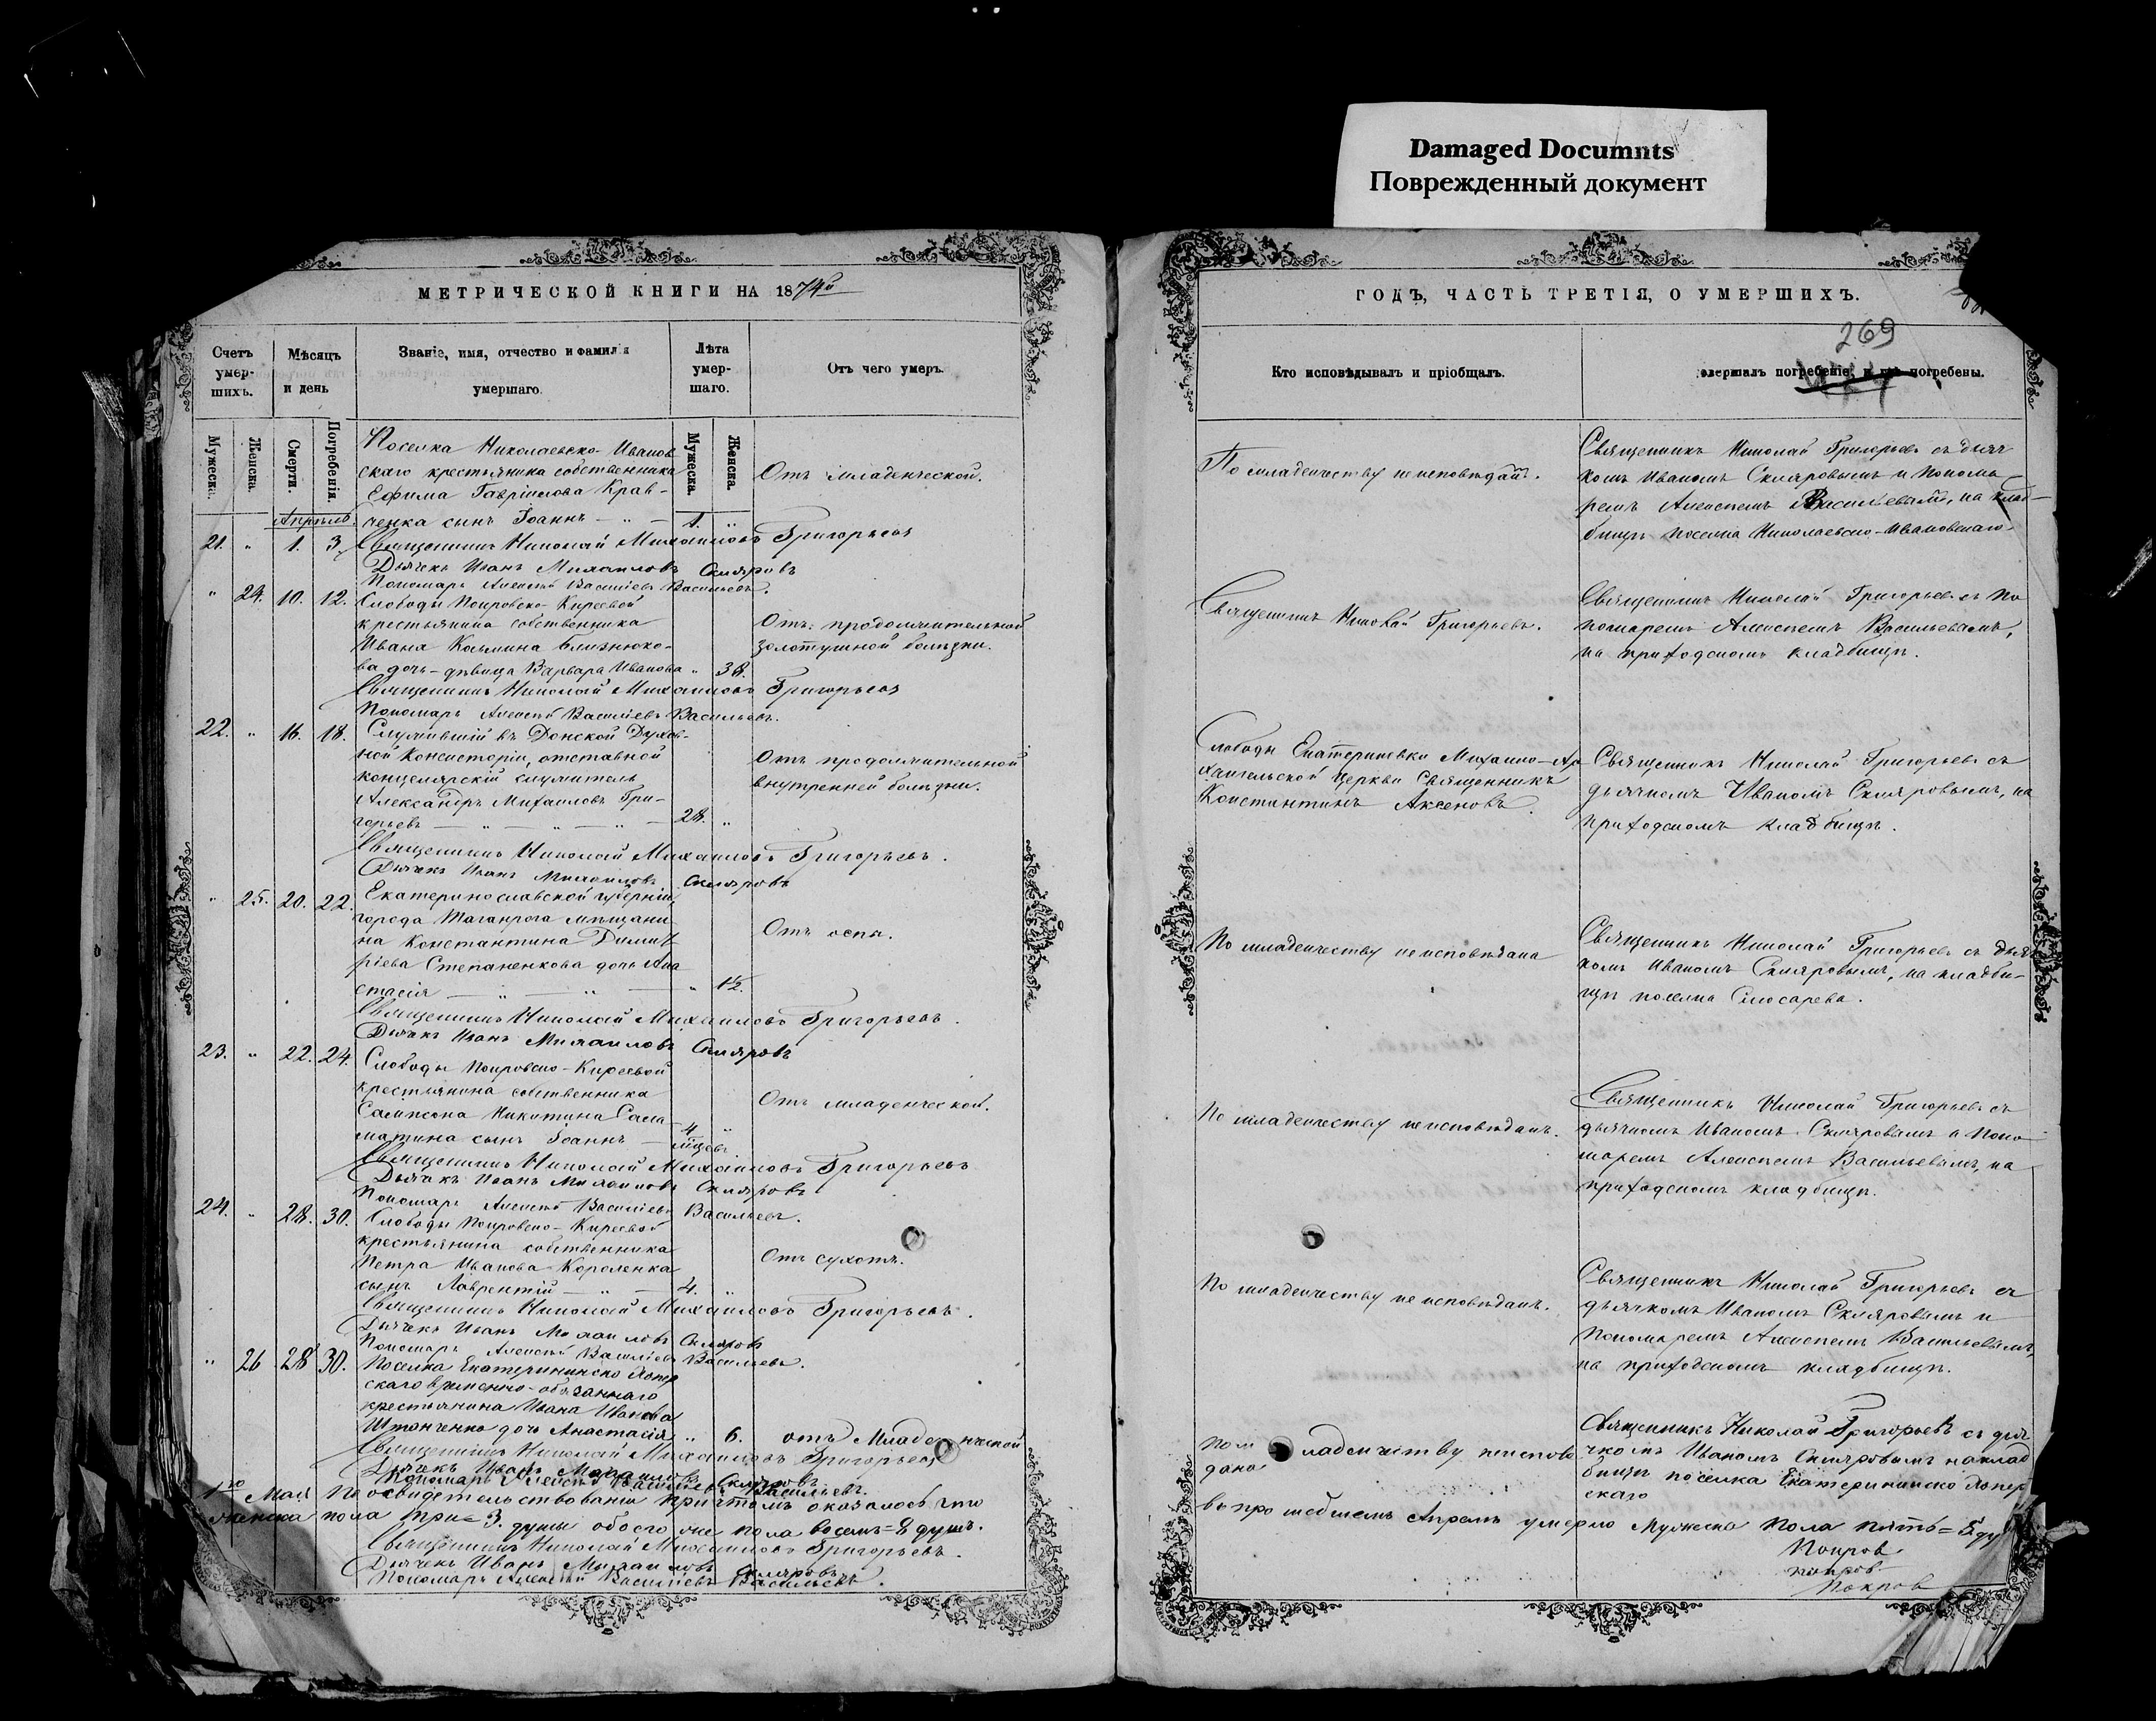 Damaged Documnts
Поврежденный документ
МЕТРИЧЕСКОЙ КНИГИ НА 1874й
Счетъ умер-шихъ.
Мѣсяцъ и день
Званіе, имя, отчество и фамилія умершаго.
Лѣта умер-шаго.
Отъ чего умеръ.
Мужеска.
Женска.
Смерти.
Погребенія.
Мужеска.
Женска.
Апрѣль.
Поселка Николаевско-Иванов
скаго крестьянина собственника
Ефима Гавріилова Крав-
ченка сынъ Іоаннъ — „ — 1. „
Отъ младенческой.
21. „ 1. 3.
Священникъ Николай Михаиловъ Григорьевъ
Дьячекъ Иванъ Михаиловъ Скляровъ
Пономарь Алексѣй Василіевъ Васильевъ.
„ 24. 10. 12.
Слободы Покровско-Киреевой
крестьянина собственника
Ивана Козьмина Близнюко-
ва дочь-дѣвица Варвара Иванова „ 38.
Отъ продолжительной
золотушной болѣзни.
Священникъ Николай Михаиловъ Григорьевъ
Пономарь Алексѣй Василіевъ Васильевъ.
22. „ 16. 18.
Служившій въ Донской Духов-
ной Консисторіи, отставной
канцелярскій служитель
Александръ Михаиловъ Гри-
горьевъ — „ — „ — 28. „
Отъ продолжительной
внутренней болѣзни.
Священникъ Николай Михаиловъ Григорьевъ.
Дьячекъ Иванъ Михаиловъ Скляровъ
„ 25. 20. 22.
Екатеринославской губерніи,
города Таганрога мѣщани-
на Константина Димит
ріева Степаненкова дочь Ана
стасія — „ — „ — „ 1½.
Отъ оспы.
Священникъ Николай Михаиловъ Григорьевъ.
Дьячекъ Иванъ Михаиловъ Скляровъ
23. „ 22. 24.
Слободы Покровско-Киреевой
крестьянина собственника
Сампсона Никитина Сала-
матина сынъ Іоаннъ — 4 „
мѣсяц.
Отъ младенческой.
Священникъ Николай Михаиловъ Григорьевъ
Дьячекъ Иванъ Михаиловъ Скляровъ
Пономарь Алексѣй Василіевъ Васильевъ.
24. „ 28. 30.
Слободы Покровско-Киреевой
крестьянина собственника
Петра Иванова Короленка
сынъ Лаврентій — „ — 4. „
Отъ сухотъ.
Священникъ Николай Михаиловъ Григорьевъ.
Дьячекъ Иванъ Михаиловъ Скляровъ
Пономарь Алексѣй Василіевъ Васильевъ.
„ 26 28 30.
Поселка Екатерининско Хопер
скаго временно-обязаннаго
крестьянина Ивана Иванова
дочь Анастасія „ 6.
отъ Младенческой
Священникъ Николай Михаиловъ Григорьевъ
Дьячекъ Иванъ Михаиловъ Скляровъ.
Пономарь Алексѣй Василіевъ Васильевъ.
1го Мая По освидетельствованіи причтомъ оказалось что
женска пола три=3. душы обоего же пола восемь=8 душъ.
Священникъ Николай Михаиловъ Григорьевъ.
Дьячекъ Иванъ Михаиловъ Скляровъ
Пономарь Алексѣй Василіевъ Васильевъ.
ГОДЪ, ЧАСТЬ ТРЕТІЯ, О УМЕРШИХЪ.
269
Кто исповѣдывалъ и пріобщалъ.
овершалъ погребеніе, и гдѣ погребены.
По младенчеству неисповѣдан.
Священникъ Николай Григорьевъ съ дьяч
комъ Иваномъ Скляровымъ и Понома-
ремъ Алексѣемъ Васильевымъ, на клад-
бищѣ поселка Николаевско-Ивановскаго
Священникъ Николай Григорьевъ.
Священникъ Николай Григорьевъ съ По
номаремъ Алексѣемъ Васильевымъ,
на приходскомъ кладбищѣ.
Слободы Екатериновки Михаило-Ар
хангельской церкви Священникъ
Константинъ Аксеновъ.
Священникъ Николай Григорьевъ съ
дьячкомъ Иваномъ Скляровымъ, на
приходскомъ кладбищѣ.
По младенчеству неисповѣдана
Священникъ Николай Григорьевъ съ дьяч
комъ Иваномъ Скляровымъ, на кладби-
щѣ поселка Слюсарева.
По младенчеству неисповѣданъ.
Священникъ Николай Григорьевъ съ
дьячкомъ Иваномъ Скляровымъ и Поно-
маремъ Алексѣемъ Васильевымъ, на
приходскомъ кладбищѣ.
По младенчеству неисповѣданъ.
Священникъ Николай Григорьевъ съ
дьячкомъ Иваномъ Скляровымъ и
Пономаремъ Алексѣемъ Васильевымъ,
на приходскомъ кладбищѣ.
младенчеству неиспове
дана
Священникъ Николай Григорьевъ съ дья
чкомъ Иваномъ Скляровымъ на клад
бищѣ поселка Екатерининско Хопер
скаго
въ прошедшемъ Апрелѣ умерло Мужеска Пола пять=5 ду
Покров
Покров
Покров